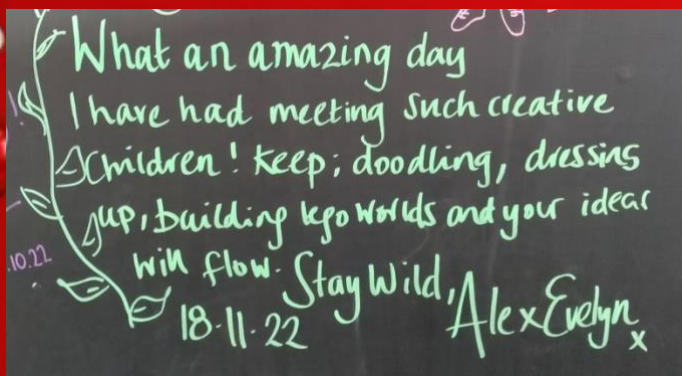 What an amazing day
I have had meeting such creative
Children! keep; doodling, dressing
up, building lego worlds and your ideas
will flow. Stay Wild,
Alex Evelyn x
18.11.22
.10.22